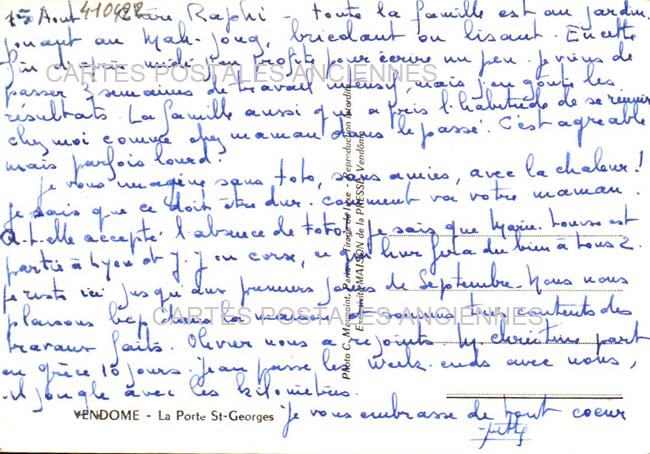 15 Août 410422 Chère Raphi - toute la famille est au jardin,
jouant au Mah-jong, bricolant ou lisant. En cette
fin d'après midi j'en profite pour écrire un peu. je viens de
CARTES POSTALES ANCIENNES
passer 3 semaines de travail intensif, mais j'en goûte les
résultats. La famille aussi qui a pris l'habitude de se réunir
chez moi comme chez maman dans le passé. C'est agréable
mais parfois lourd.
je vous imagine sans toto, sans amies, avec la chaleur!
je sais que ce doit être dur. comment va votre maman.
A-t-elle accepté l'absence de toto. je sais que Marie-Louise est
partie à Lyon et J.J en corse, ce qui leur fera du bien à tous 2.
je reste ici jusqu'aux premiers jours de Septembre. Nous nous
plaisons bcp dans la maison et sommes très contents des
CARTES POSTALES ANCIENNES
travaux faits. Olivier nous a rejoints. christine part
en grèce 10 jours. jean passe les week-ends avec nous,
et jongle avec les kilomètres.
VENDOME - La Porte St-Georges
je vous embrasse de tout coeur
Photo C. Tirage de Luxe - Reproduction Interdite
MAISON de la PRESSE, Vendôme